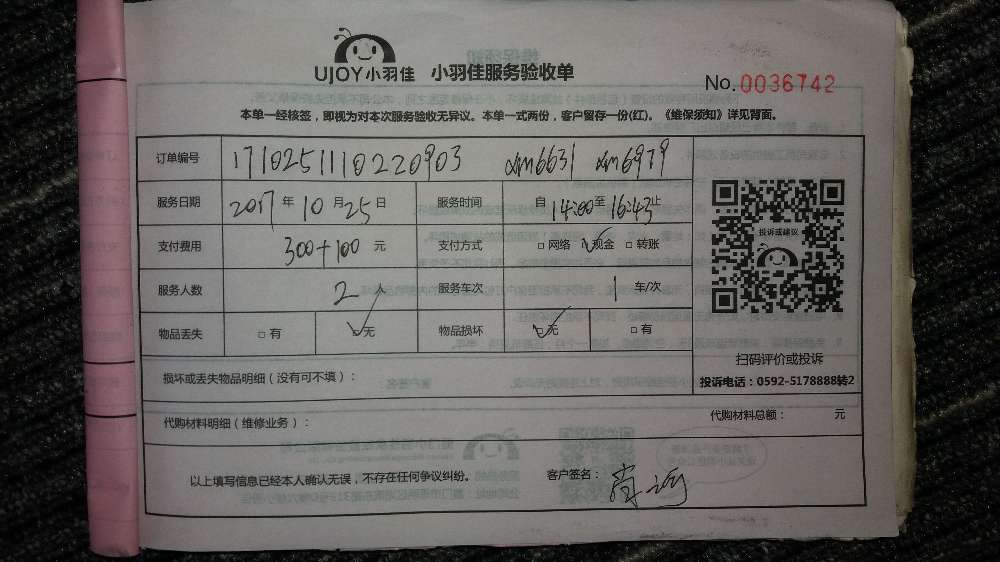 UJOY小羽佳 小羽佳服务验收单
No. 0036742
本单一经核签，即视为对本次服务验收无异议。本单一式两份，客户留存一份(红)。《维保须知》详见背面。
订单编号 1710251110220903 xm6631 xm6979
服务日期 2017 年 10 月 25 日 服务时间 自 14:00 至 16:43 止
支付费用 300+100 元 支付方式 □ 网络 □ 现金 □ 转账
服务人数 2 人 服务车次 1 车/次
物品丢失 □ 有 □ 无 物品损坏 □ 无 □ 有
投诉或建议
扫码评价或投诉
投诉电话：0592-5178888转2
损坏或丢失物品明细（没有可不填）：
代购材料明细（维修业务）： 代购材料总额： 元
以上填写信息已经本人确认无误，不存在任何争议纠纷。 客户签名：